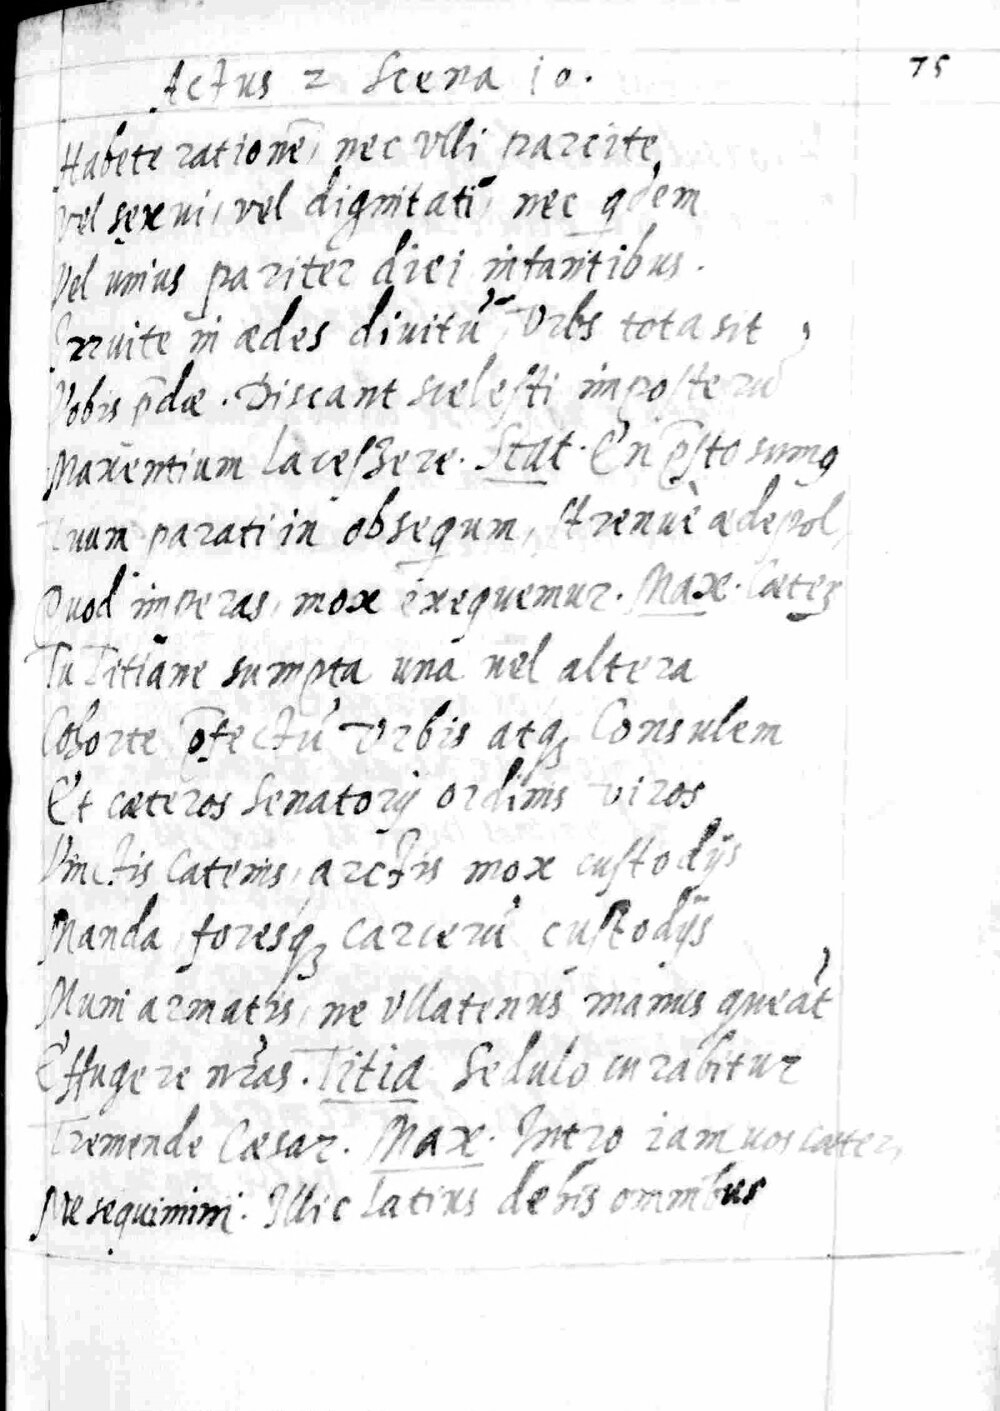 Actus 2 Scena 10. 75
Habete rationē, nec vlli parcite
Vel sexui, vel dignitati, nec qdem
Vel unius pariter diei infantibus.
Irruite in ædes divitū, Urbs tota sit
Vobis p̄dæ. Discant scelesti imposterū
Maxentium lacessere. Stat. En p̄sto sumq
Tuum parati in obsequm, strenuè ædepol,
Quod imperas, mox exequemur. Max. Cæterꝫ
Tu Titiane sumpta una vel altera
Cohorte p̄fectū Urbis atqꝫ Consulem
Et cæteros Senatorij ordinis viros
Vinctis catenis, arctis mox custodijs
Manda foresqꝫ carcerū custodijs
Muni armatis, ne vllatenus manus queāt
Effugere nr̄as. Titia Sedulo curabitur
Tremende Cæsar. Max. Intro iam vos cæteri
Me sequimini. Illic latius de his omnibus